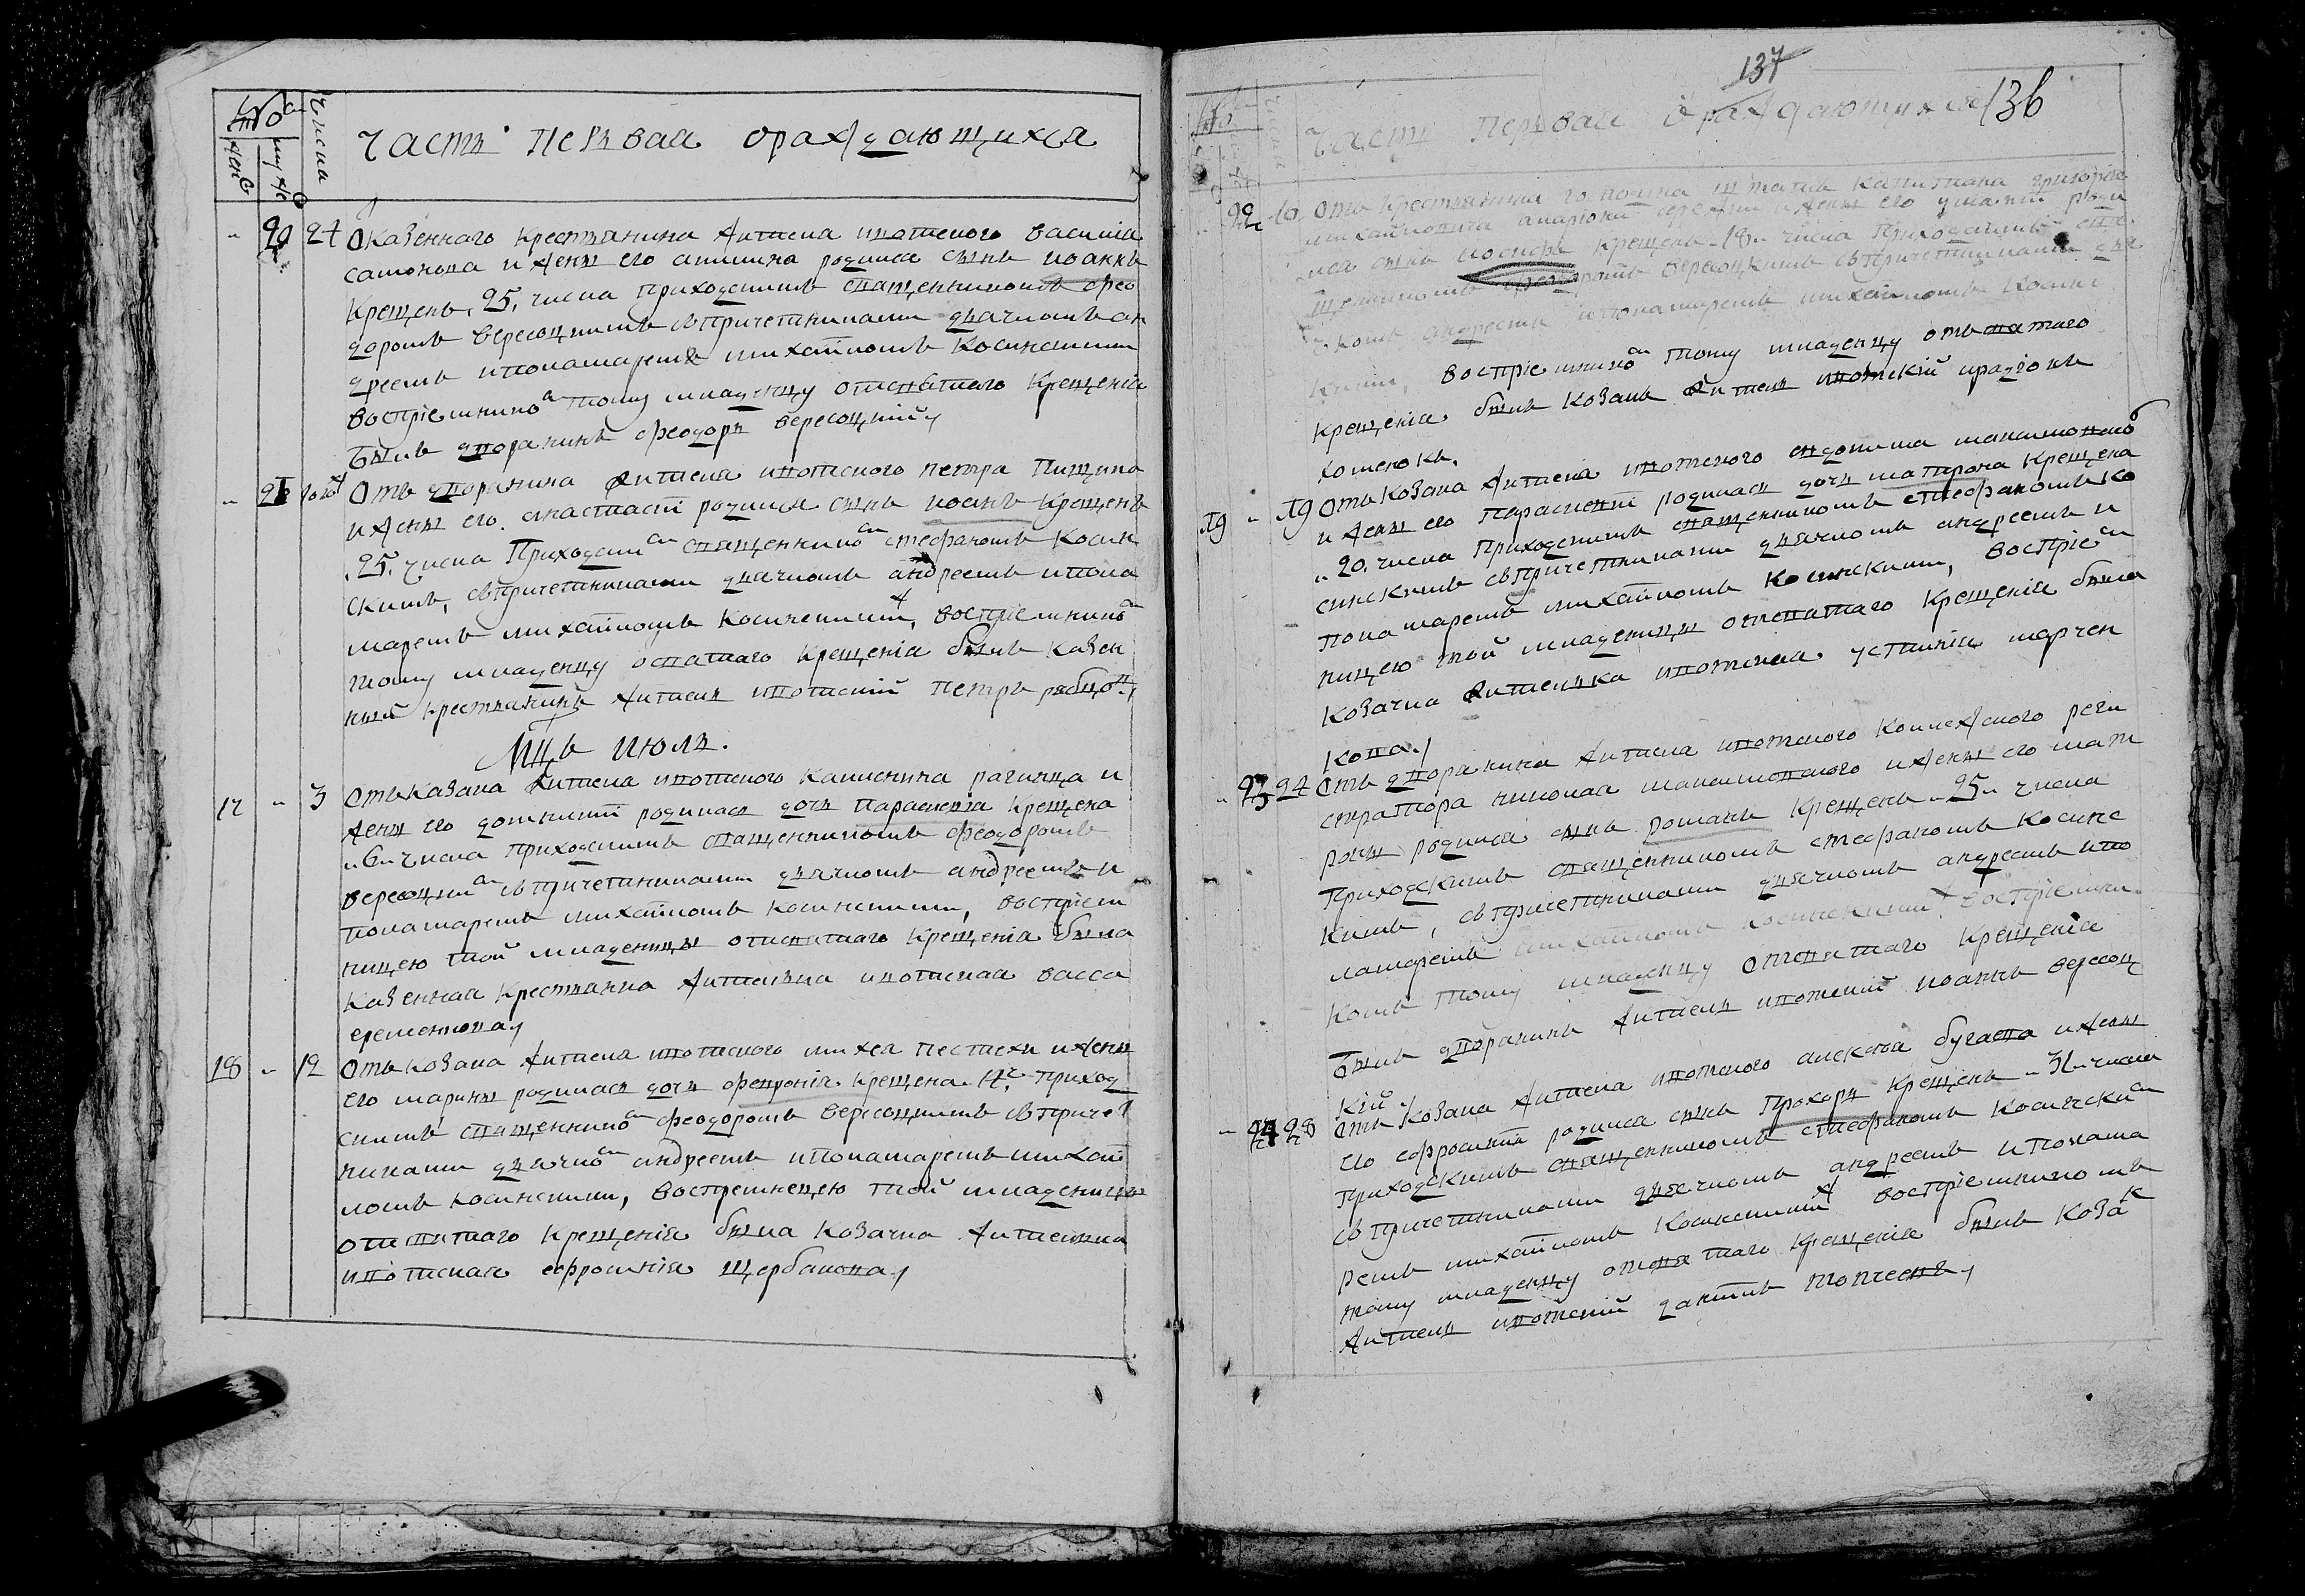 №
женс
мужс
Числа
Часть первая ораждающихся
20 24 Оказеннаго крестьянина жителя ивотского василiа
самонова и жены его анны родился сынъ иоаннъ
крещенъ 25 числа приходскимъ священникомъ фео
доромъ вересоцкимъ съпричетниками дьячкомъ ан
дреемъ ипономаремъ михаиломъ косинскими
воспрiемникомъ тому младенцу отсвятаго крещенiа
былъ дворянинъ феодоръ вересоцкiй
21 Отъ дворянина жителя ивотского петра пищина
ижены его анастасiи родился сынъ иоанъ крещенъ
25 числа Приходским священником стефаномъ косин
скимъ, съпричетниками дьячкомъ андреемъ ипоно
маремъ михаиломъ косинскими, воспрiемником
тому младенцу освятаго крещенiа былъ казен
ный крестьянинъ житель ивотскiй петръ рябцов
Мцъ июль.
17 " 3 Отъказака жителя ивотского каленика рагинца и
жены его домникiи родилась дочь параскевiа крещена
"6" числа приходскимъ священникомъ феодоромъ
вересоцким съпричетниками дьячкомъ андреемъ и
пономаремъ михаиломъ косинскими, воспрiем
ницею той младеницы отсвятаго крещенiа была
казенная крестьянка жителька ивотская васса
еременкова
18 " 12 Отъ козака жителя ивотского михея пестехи ижены
его марины родилась дочь февронiя крещена 14го приход
скимъ священником феодоромъ вересоцкимъ съпричет
никами дьячком андреемъ ипономаремъ михаи
ломъ косинскими, воспремнецею той младеницы
отсвятаго крещенiа была козачка жителька
ивотская ефросинiя щербакова
137
136
Часть Первая ораждающихся
22 10 Отъ крестьянина господина штапсъ капитана григорiа
михайловича ижены его родил
ся сынъ иосифъ крещенъ 18 числа приходскимъ свя
щенникомъ феодоромъ вересоцкимъ съпричетниками дья
чкомъ андреемъ ипономаремъ михаиломъ косинс
кими, воспрiемником тому младенцу отъ святаго
крещенiа былъ козакъ житель ивотскiй иродiонъ
хоменокъ.
19 " 19 Отъ козака жителя ивотского евдокима максимовскаго
и жены его параскевiи родилась дочь матрона крещена
"20" числа приходскимъ священникомъ стефаномъ ко
синскимъ съпричетниками дьячкомъ андреемъ и
пономаремъ михаиломъ косинскими, воспрiем
ницею той младеницы отсвятаго крещенiа была
козачка жителька ивотская устинiя марчен
кова
" 23 24 Отъ дворянина жителя ивотского коллежского реги
стратора николая максимовского ижены его мат
роны родился сынъ романъ крещенъ "25" числа
приходскимъ священникомъ стефаномъ косинс
кимъ, съпричетниками дьячкомъ андреемъ ипо
номаремъ михаиломъ косинскими воспрiемни
комъ тому младенцу отсвятаго крещенiа
былъ дворянинъ житель ивотскiй иоаннъ вересоц
кiй
" 24 28 Отъ козака жителя ивотского алексея бугаева ижены
его ефросинiи родился сынъ Прохоръ крещенъ "31" числа
приходскимъ священникомъ стефаномъ косински
съ причетниками дьячкомъ андреемъ ипонома
ремъ михаиломъ косинскими воспрiемникомъ
тому младенцу отсвятаго крещенiа былъ козак
житель ивотскiй данiилъ